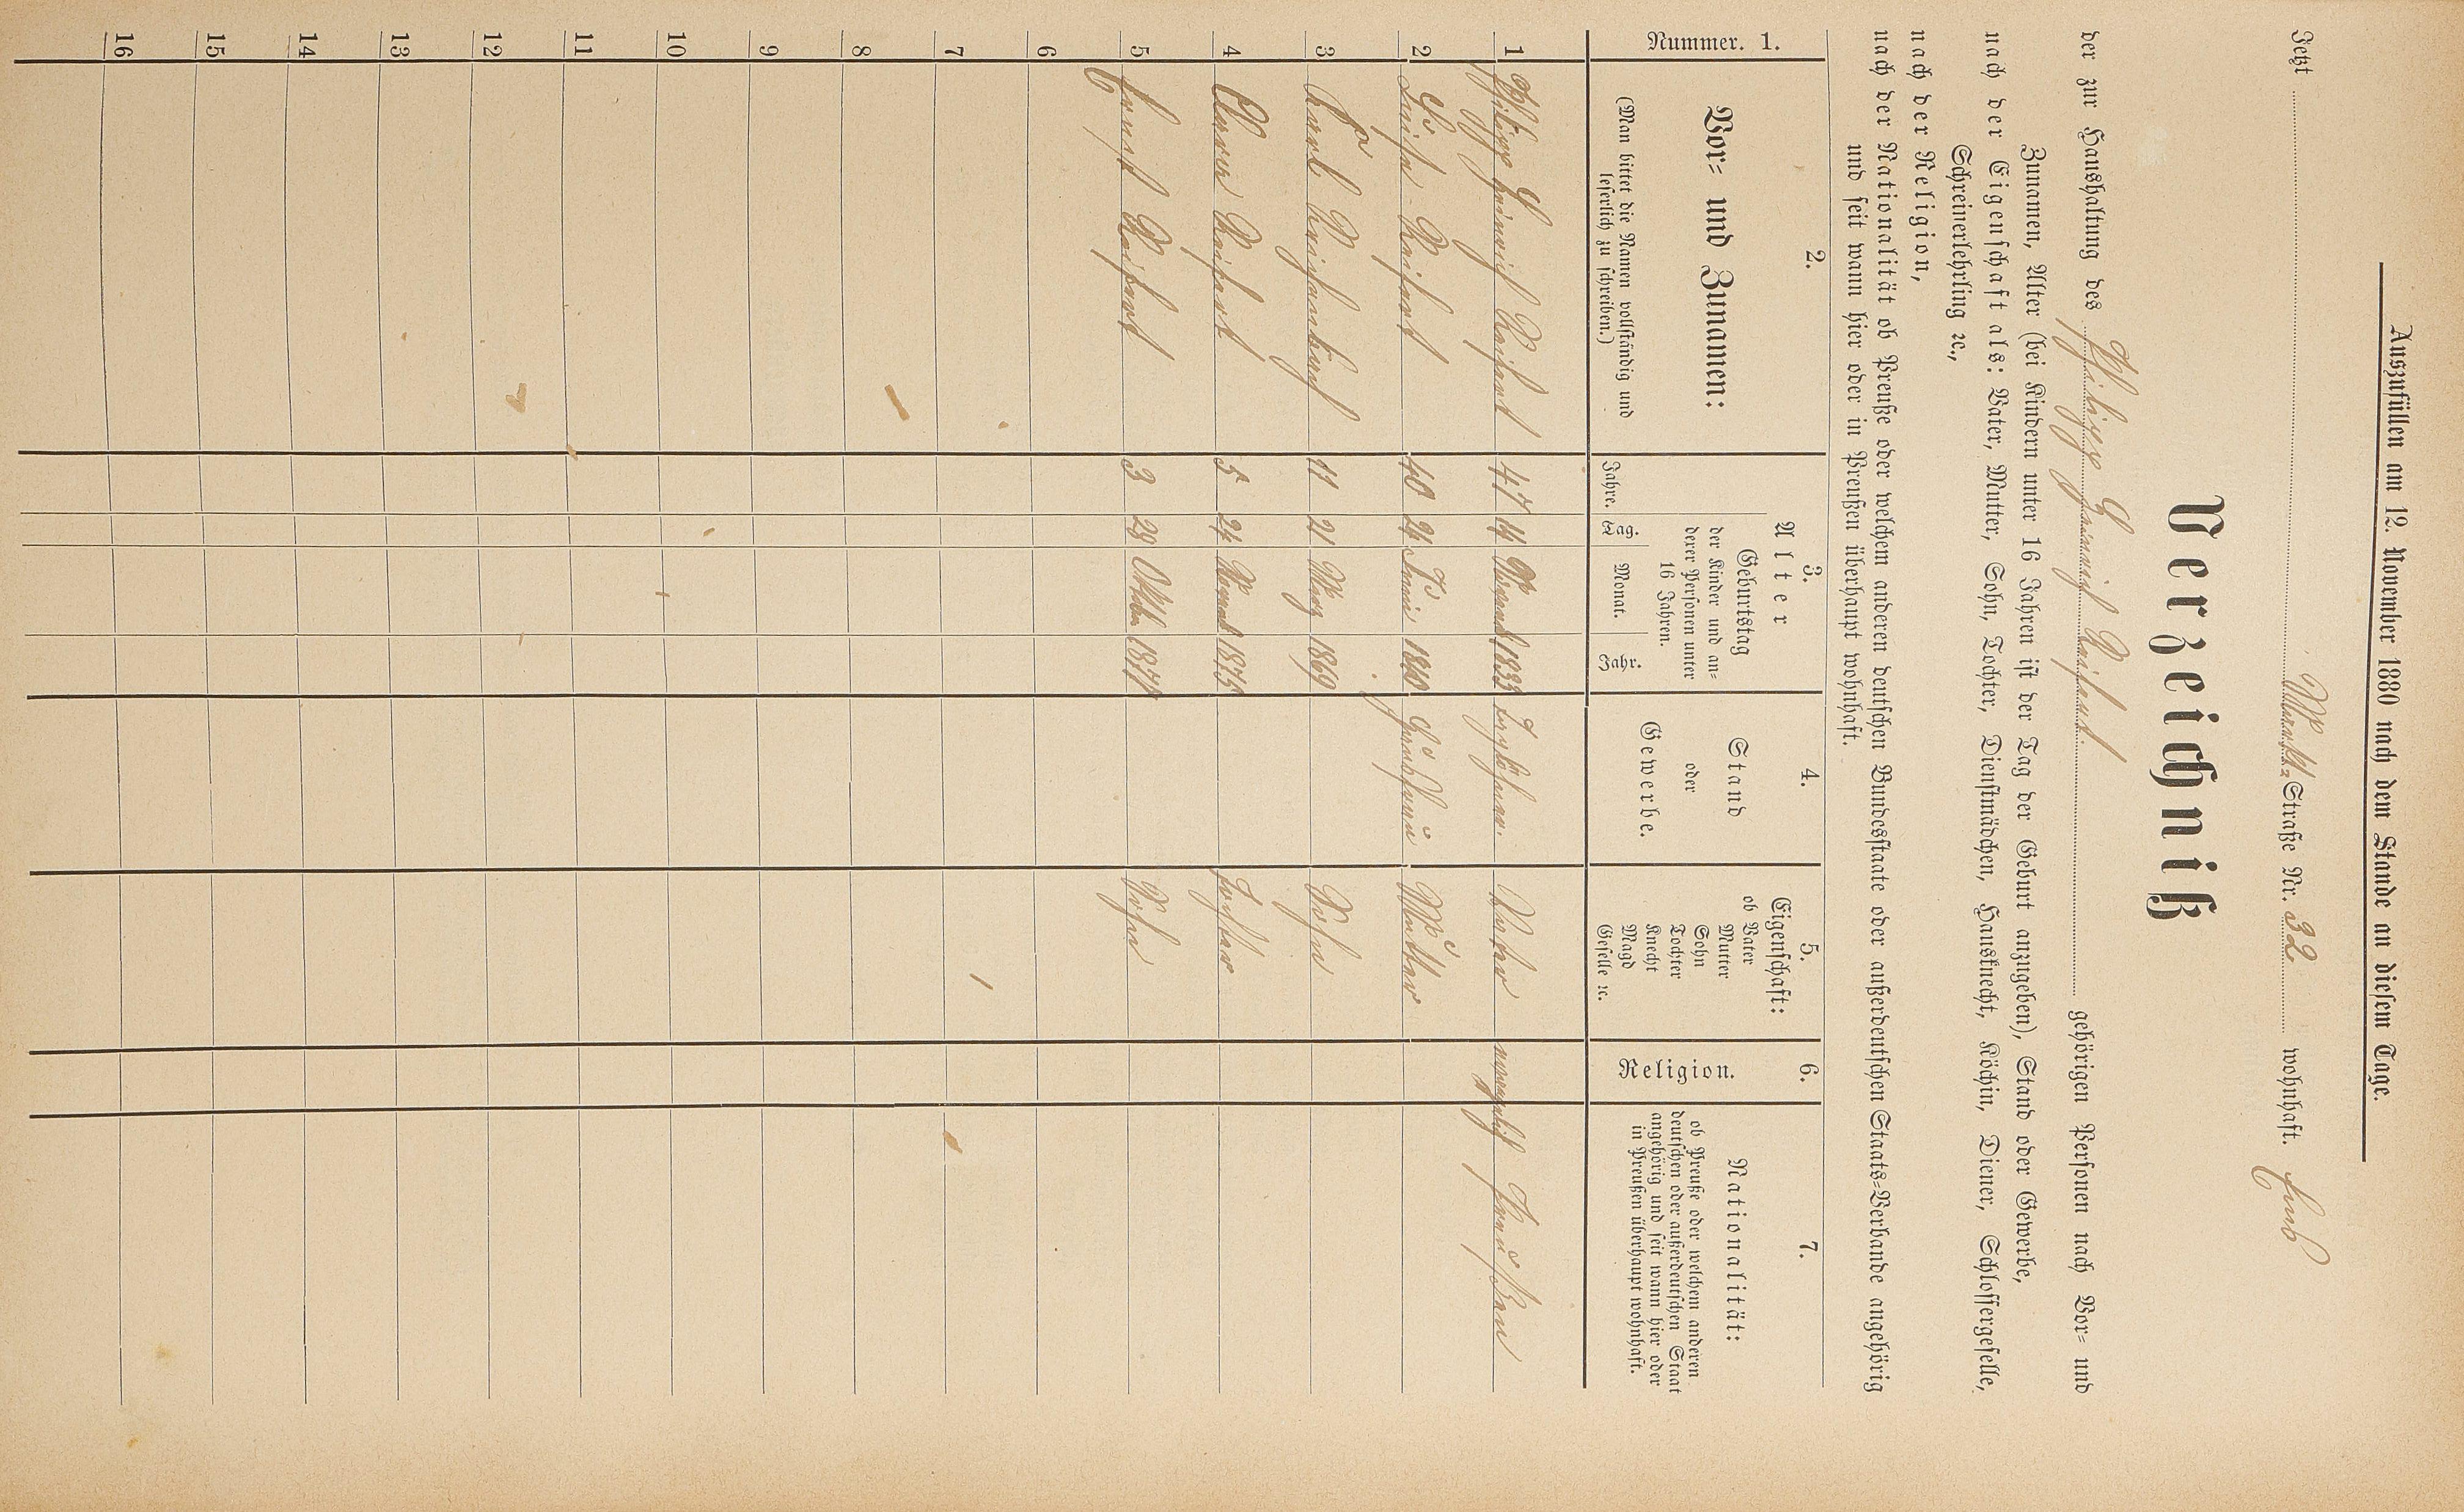 Auszufüllen am 12. November 1880 nach dem Stande an diesem Tage.
Jetzt Markt-Straße Nr. 32 wohnhaft.
Verzeichniß
der zur Haushaltung des Philipp Heinrich gehörigen Personen nach Vor- und
Zunamen, Alter (bei Kindern unter 16 Jahren ist der Tag der Geburt anzugeben), Stand oder Gewerbe,
nach der Eigenschaft als: Vater, Mutter, Sohn, Tochter, Dienstmädchen, Hausknecht, Köchin, Diener, Schlossergeselle,
Schreinerlehrling ꝛc.,
nach der Religion,
nach der Nationalität ob Preuße oder welchem anderen deutschen Bundesstaate oder außerdeutschen Staats-Verbande angehörig
und seit wann hier oder in Preußen überhaupt wohnhaft.
1. Nummer.
2. Vor- und Zunamen:
(Man bittet die Namen vollständig und
leserlich zu schreiben.)
3. Alter
Geburtstag
der Kinder und an-
derer Personen unter
16 Jahren.
Jahre. Tag. Monat. Jahr.
4. Stand
oder
Gewerbe.
5. Eigenschaft:
ob Vater
Mutter
Sohn
Tochter
Knecht
Magd
Geselle ꝛc.
6. Religion.
7. Nationalität:
ob Preuße oder welchem anderen
deutschen oder außerdeutschen Staat
angehörig und seit wann hier oder
in Preußen überhaupt wohnhaft.
1 Philipp Heinrich 47 14 1833 Taglöhner. Vater Preußen
2 Luise 40 24 Juni 1840 Hausfrau Mutter
3 Karl 11 21 März 1869 Sohn
4 5 24 1875 Tochter
5 Ernst 3 28 Oktober 1877 Sohn
6
7
8
9
10
11
12
13
14
15
16